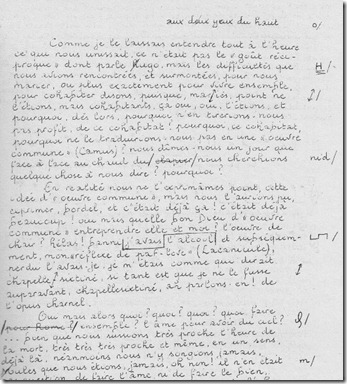 aux deux yeux du haut
Comme je le laissais entendre tout à l'heure
ce qui nous unissait, ce n'était pas le « goût réci-
proque » dont parle Hugo, mais les difficultés que
nous avions rencontrées, et surmontées, pour nous
marier, ou plus exactement pour vivre ensemble,
pour cohabiter disons, puisque, mariés, point ne
l'étions, mais cohabitants, ça oui, oui, l'étions, et
pourquoi, dès lors, pourquoi n'en tirerions-nous
pas profit, de ce cohabitat? pourquoi, ce cohabitat,
pourquoi ne le traduirions-nous pas en une « œuvre
commune » (Camus)? nous dîmes-nous un jour que
face à face au chenil du nous cherchions
quelque chose à nous dire! pourquoi?
En réalité nous ne l'exprimâmes point, cette
idée d'« œuvre commune », mais nous l'aurions pu,
exprimer, bordel, et c'était déjà ça! c'était déjà
beaucoup! oui mais quelle bon Dieu d'« œuvre
commune » entreprendre elle et moi? l'œuvre de
chair? hélas! j'avais l'alcool et subséquem-
ment, mon « réflexe de » (Lacanicule),
perdu l'avais-je. je m'étais comme qui dirait
chapelle, si tant est que je ne le fusse
auparavant, en parlons-en! de
l'opus charnel.
Oui mais alors quoi? quoi? quoi? faire
ensemble? l'âme pour avoir du ciel?
... bien que nous fussions très proche l'heure de
la mort, très, très proche et même, en un sens,
déjà là, néanmoins nous n'y songions jamais,
toutes que nous étions, jamais, oh non! il n'en était
question, de faire l'âme ni de faire le bien,